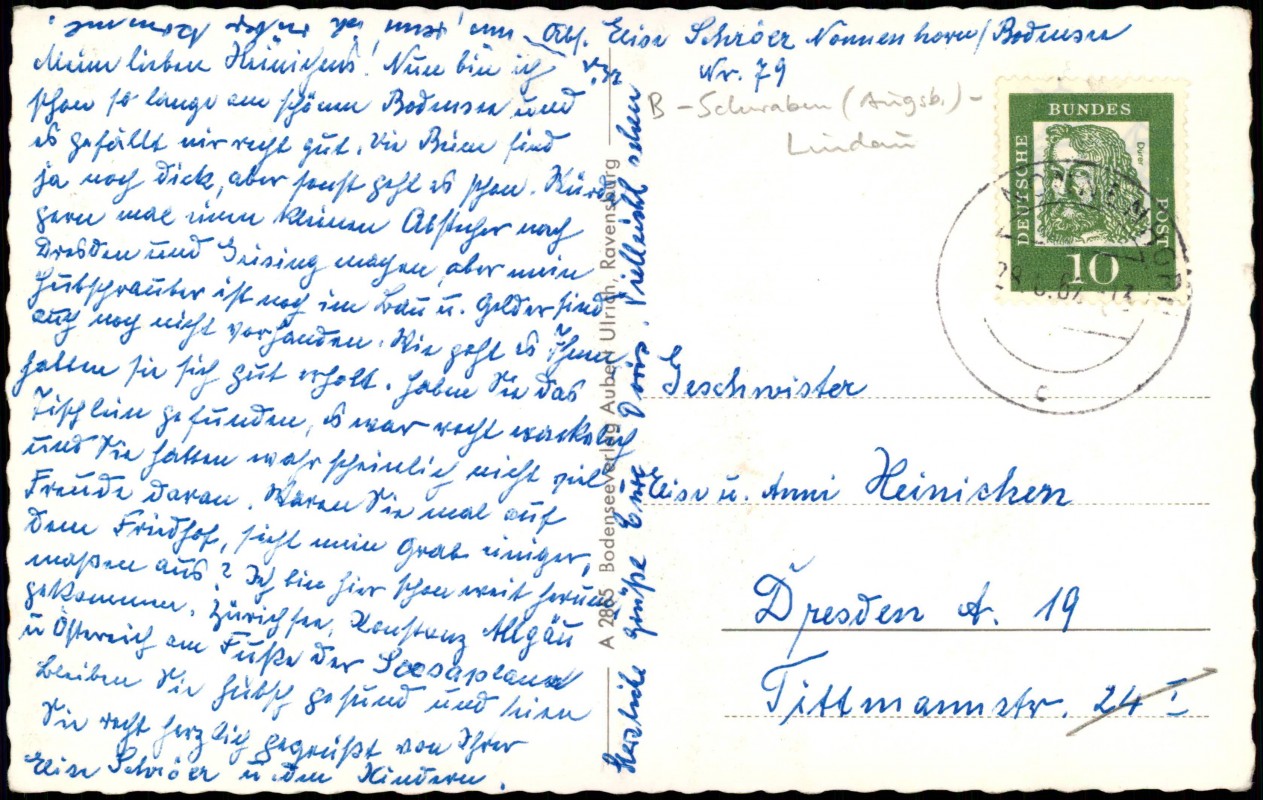 Abs. Elise Schröer Nonnenhorn/Bodensee
Nr. 79
B – Schwaben (Augsb.) –
Lindau
DEUTSCHE BUNDES POST
Dürer
10
NONNENHORN
c
Meine lieben Heinichens! Nun bin ich
schon so lange am schönen Bodensee und
es gefällt mir recht gut. Die Beine sind
ja noch dick, aber sonst geht es schon. Würde
gern mal einen kleinen Abstecher nach
Dresden und Geising machen, aber mein
Hubschrauber ist noch im Bau u. Gelder sind
auch noch nicht vorhanden. Wie geht es Ihnen
hatten sie sich gut erholt. Haben Sie das
Tischlein gefunden, es war recht wackelich
und Sie hatten wahrscheinlich nicht viel
Freude daran. Waren Sie mal auf
dem Friedhof, sieht mein Grab einiger
maßen aus? Ich bin hier schon weit herum
gekommen. Zürichsee, Konstanz Allgäu
u Österreich am Fuße der Scesaplana
Bleiben Sie hübsch gesund und seien
Sie recht herzlich gegrüßt von Ihrer
Elise Schröer u. den Kindern.
Herzliche Grüße Eure Doris. Vielleicht sehen
wir
A 2865 Bodenseeverlag Aubert Ulrich, Ravensburg
Geschwister
Elise u. Anni Heinichen
Dresden A. 19
Tittmannstr. 24 I